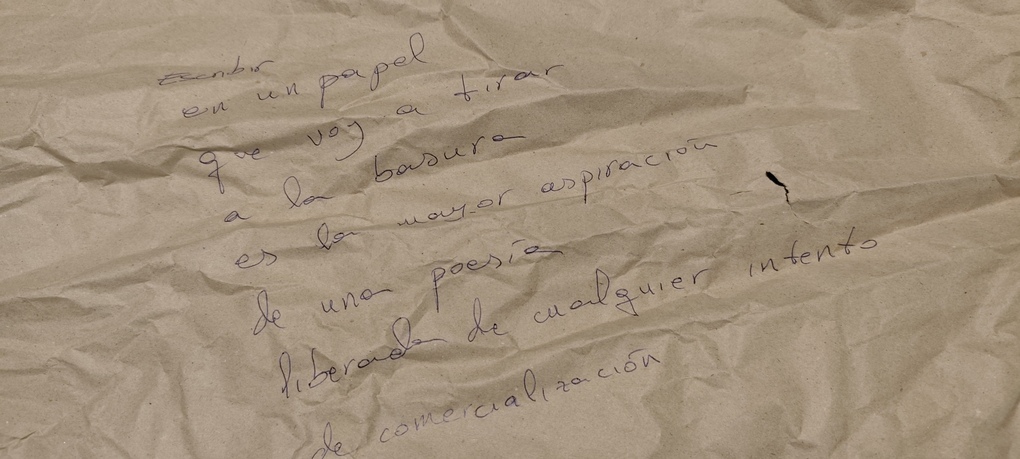 Escribir
en un papel
que voy a tirar
a la basura
es la mayor aspiración
de una poesía
liberada de cualquier intento
de comercialización